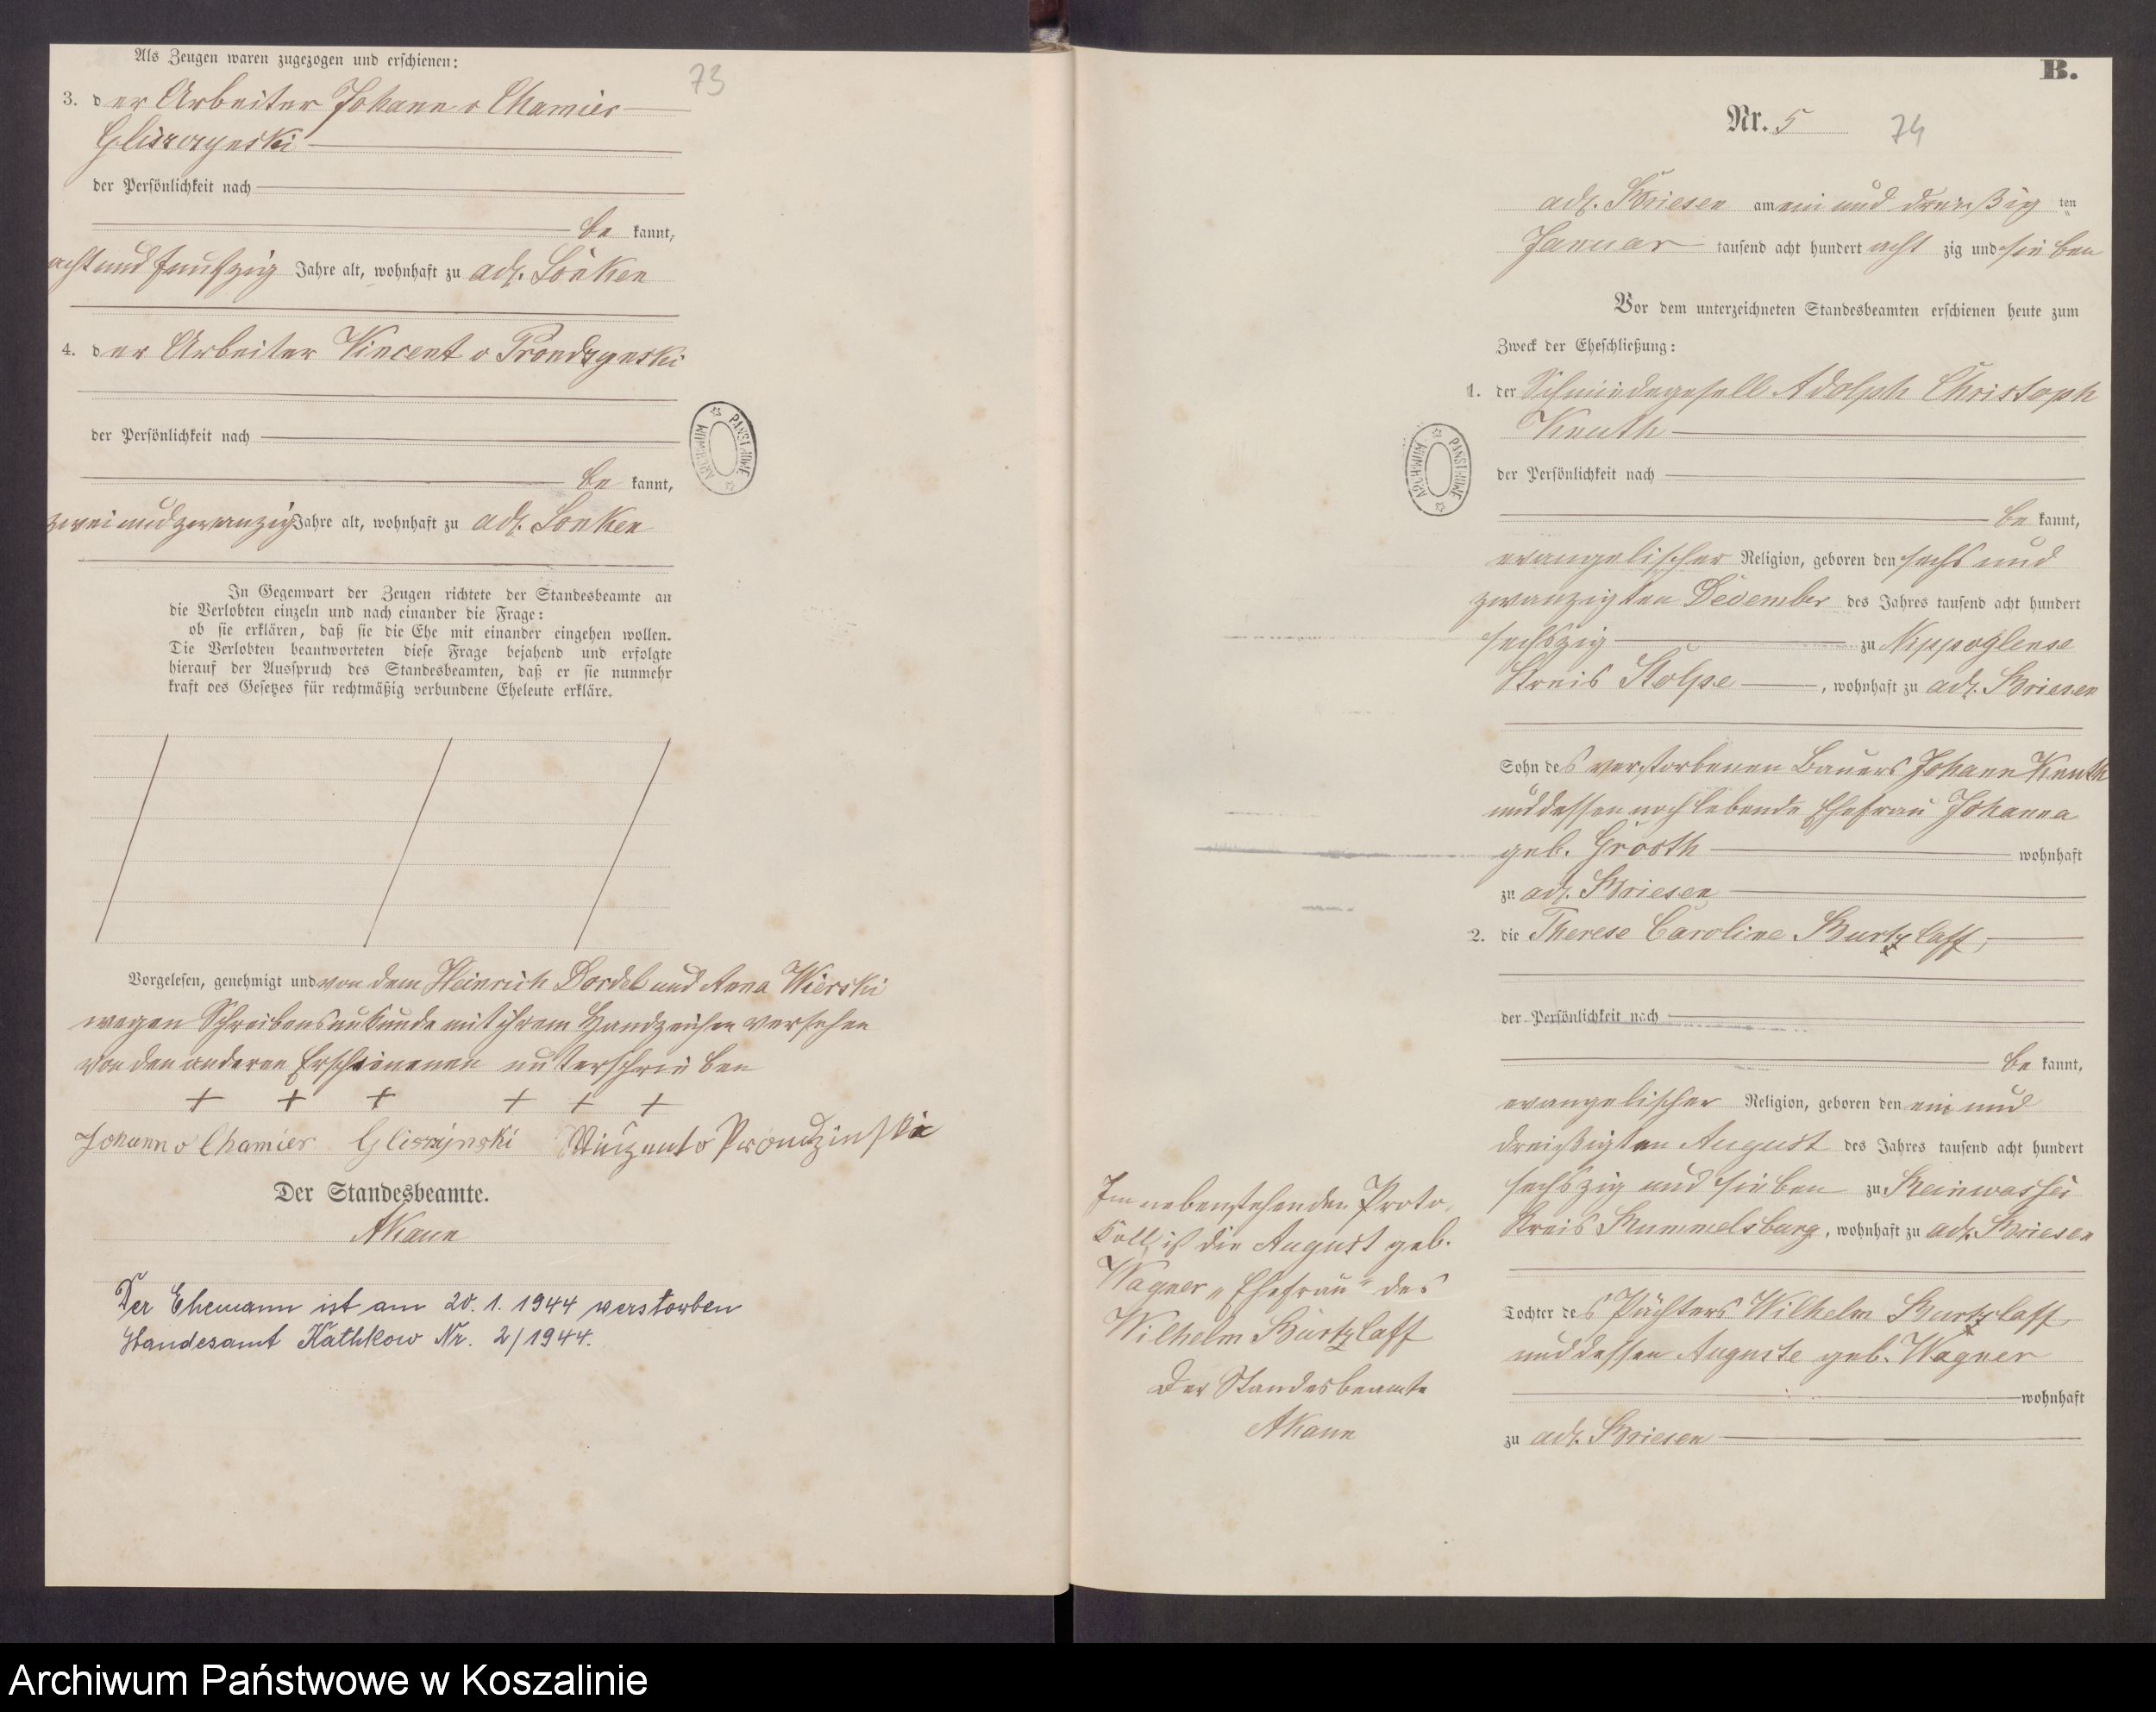 Als Zeugen waren zugezogen und erschienen:
73
3. der Arbeiter Johann v Chamier
Gliszczynski
der Persönlichkeit nach
be kannt,
acht und funfzig Jahre alt, wohnhaft zu adl. Lonken
4. der Arbeiter Vincent v Prondzynski
der Persönlichkeit nach
be kannt,
zwei und zwanzig Jahre alt, wohnhaft zu adl. Lonken
In Gegenwart der Zeugen richtete der Standesbeamte an
die Verlobten einzeln und nach einander die Frage:
ob sie erklären, daß sie die Ehe mit einander eingehen wollen.
Die Verlobten beantworteten diese Frage bejahend und erfolgte
hierauf der Ausspruch des Standesbeamten, daß er sie nunmehr
kraft des Gesetzes für rechtmäßig verbundene Eheleute erkläre.
Vorgelesen, genehmigt und von dem Heinrich Dordel und Anna Wierski
wegen Schreibensunkunde mit ihrem Handzeichen versehen
von den anderen Erschienenen unterschrieben
+ + + + + +
Johann v Chamier Gliszynski Vinzent v Prondzinski
Der Standesbeamte.
AKann
Der Ehemann ist am 20. 1. 1944 verstorben
Standesamt Kathkow Nr. 2/1944.
PAŃSTWOWE ARCHIWUM
B.
Nr. 5
74
adl. Briesen am ein und dreißig ten
Januar tausend acht hundert acht zig und sieben
Vor dem unterzeichneten Standesbeamten erschienen heute zum
Zweck der Eheschließung:
1. der Schmiedegesell Adolph Christoph
Knuth
der Persönlichkeit nach
be kannt,
evangelischer Religion, geboren den sechs und
zwanzigten December des Jahres tausend acht hundert
sechszig zu Nippoglense
Kreis Stolpe, wohnhaft zu adl. Briesen
Sohn des verstorbenen Bauers Johann Knuth
und dessen noch lebende Ehefrau Johanna
geb. Groth wohnhaft
zu adl. Briesen
2. die Therese Caroline Burtzlaff,
der Persönlichkeit nach
be kannt,
evangelischer Religion, geboren den ein und
dreißigten August des Jahres tausend acht hundert
sechszig und sieben zu Reinwasser
Kreis Rummelsburg, wohnhaft zu adl. Briesen
Tochter des Pächters Wilhelm Burtzlaff
und dessen Auguste geb. Wagner
wohnhaft
zu adl. Briesen
PAŃSTWOWE ARCHIWUM
Im nebenstehenden Proto
koll ist die August geb.
Wagner „Ehefrau" des
Wilhelm Burtzlaff
Der Standesbeamte
AKann
Archiwum Państwowe w Koszalinie